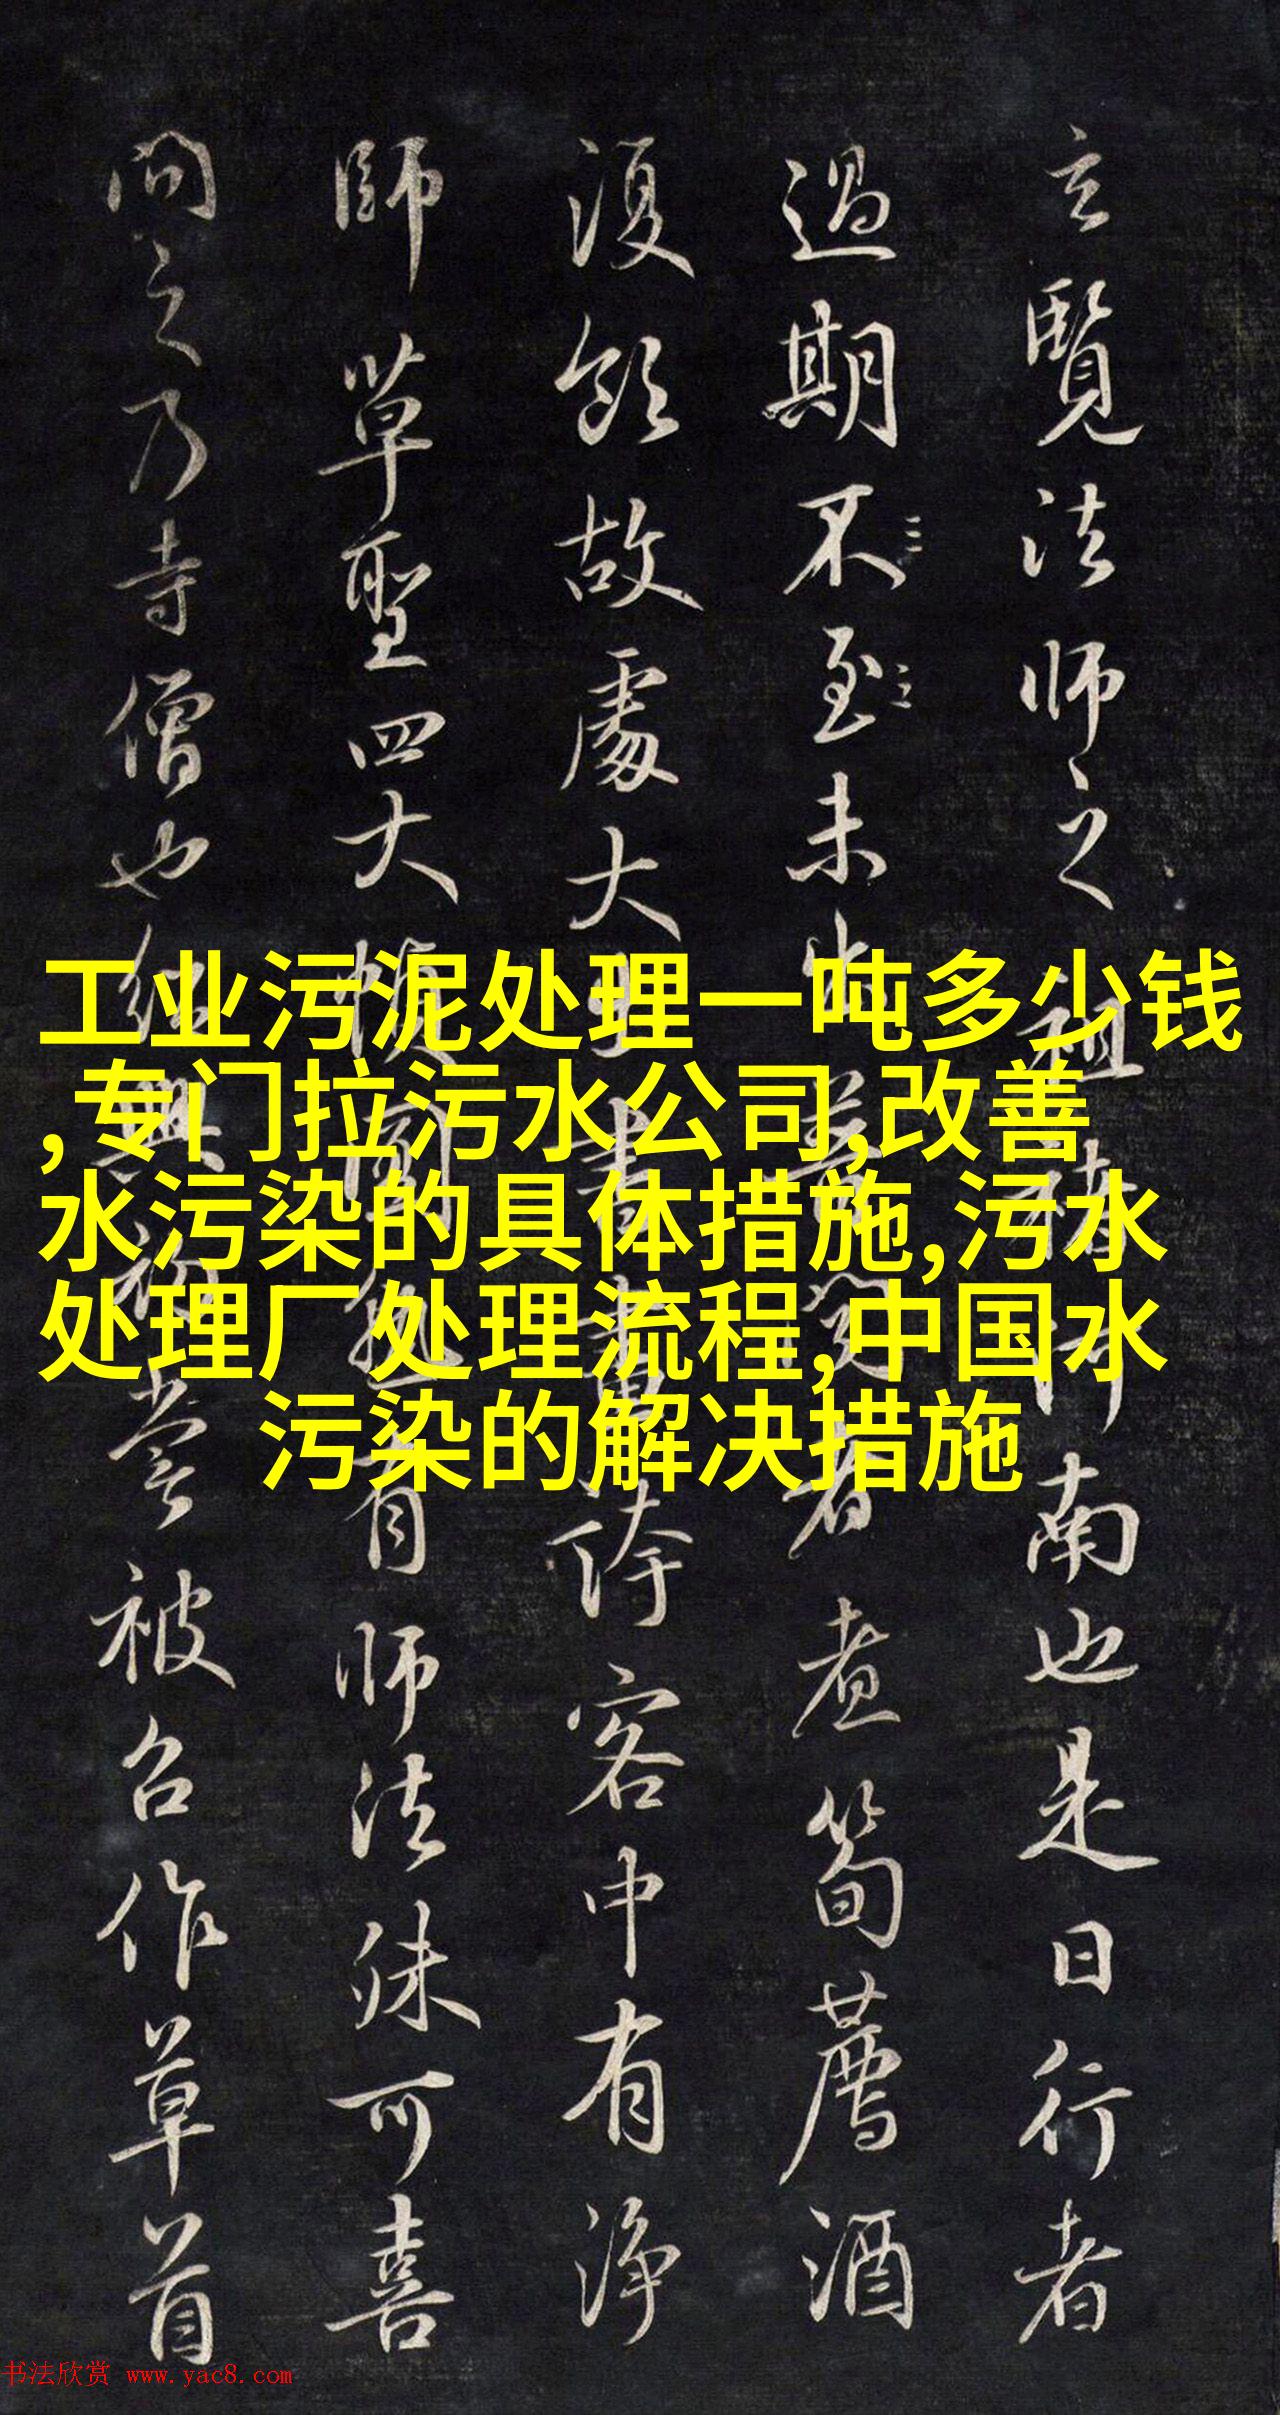 工业污泥处理一吨多少钱
,专门拉污水公司,改善
水污染的具体措施,污水
处理厂处理流程,中国水
污染的解决措施
玄覽法师之祖河南也是日行者
過期不至未出者煮筍薦酒
復飲故處大書畫客中有淨
師草聖四大有师法殊可喜
问之乃寺僧也紹興初嘗被召作草首
书法欣赏 www.yac8.com